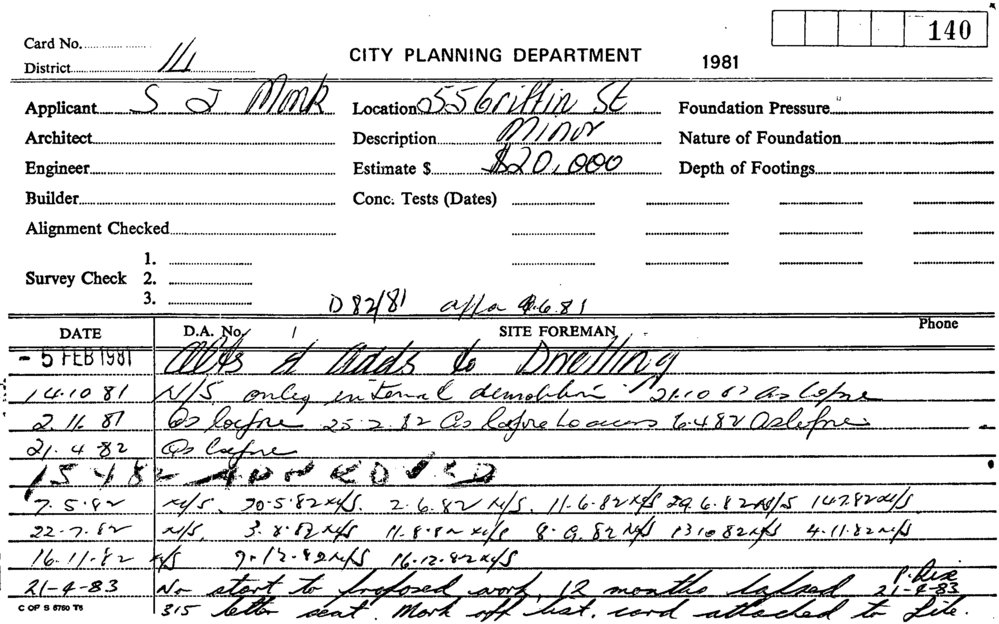 140
Card No.
CITY PLANNING DEPARTMENT 1981
District
Applicant S J Monk Location 55 Griffin St Foundation Pressure
Architect Description Minor Nature of Foundation
Engineer Estimate $ $20,000 Depth of Footings
Builder Conc. Tests (Dates)
Alignment Checked
1.
Survey Check 2.
3.
D 82/81 .6.81
DATE D.A. No. SITE FOREMAN Phone
- 5 FEB 1981 Alts & Adds to Dwelling
14.10 81 N/S, only internal demolition 21.10 As before
2 11 81 As before 25.2.82 As before 6.4.82 As before
21. 4.82 As before
15 4 82 APPROVED
7.5.82 N/S. 20.5.82 N/S. 2.6.82 N/S. 11.6.82 N/S 29.6.82 N/S 14.7.82 N/S
22.7.82 N/S. 3.8.82 N/S 11.8.82 N/S 8.9.82 N/S 13 10 82 N/S 4.11.82 N/S
16.11.82 N/S 9.12.82 N/S 16.12.82 N/S
21-4-83 No start to proposed work, 12 months lapsed 21-4-83
C OF S 6760 T5 315 letter sent. Mark off list. card attached to file.